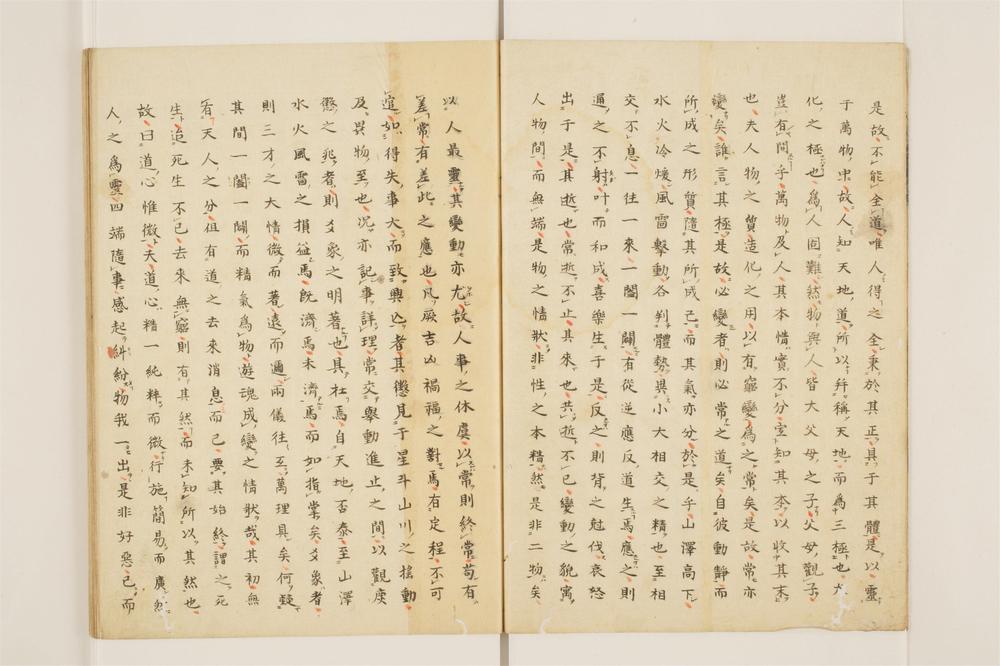 是故不能全道唯人得之全秉於其正具于其體是以靈
于萬物中故人知天地道所以幷稱天地而爲三極也
化之極也爲人固難然物與人皆大父母之子父母觀子
豈有間乎萬物及人其本情實不分室知其本以收其末
也夫人物之質造化之用以有窮變爲之常矣是故常亦
變矣誰言其極是故必變者則必常之道矣自彼動靜而
所成之形質隨其所成己而其氣亦分於是乎山澤高下
水火冷煖風雷擊動各判體勢異小大相交之精也至相
交不息一往一來一闔一闢有從逆應反道生焉應之則
通之不射叶而和成喜樂生于是反之則背之尅伐哀
出于是其逝也常逝不止其來也共逝不已變動之貌寓
人物間而無端是物之情狀非性之本精然是非二物矣
以人最靈其變動亦尤故人事之休虞以常則終常苟有
差常有差此之應也凡厥吉凶禍福之對焉有定程不可
遁如得失事大而致興亡者其徵見于星斗山川之搖動
及異物至也況亦記事詳理常交擧動進止之間以觀
之兆者則爻象之明著也具在焉自天地否泰至山澤
水火風雷之損益焉旣濟焉未濟焉而如指掌矣爻象者
則三才之大情微而著遠而邇兩儀往互萬理具矣何疑
其間一闔一闢而精氣爲物遊魂成變之情狀哉其初無
有天人之分但有道之去來消息而已要其始終謂之死
生迨死生不已去來無窮則有其然而未知所以其然也
故曰道心惟微夫道心精一純粹而微行施簡易而廣
人之爲靈四端隨事感起糾紛物我一出是非好惡已而